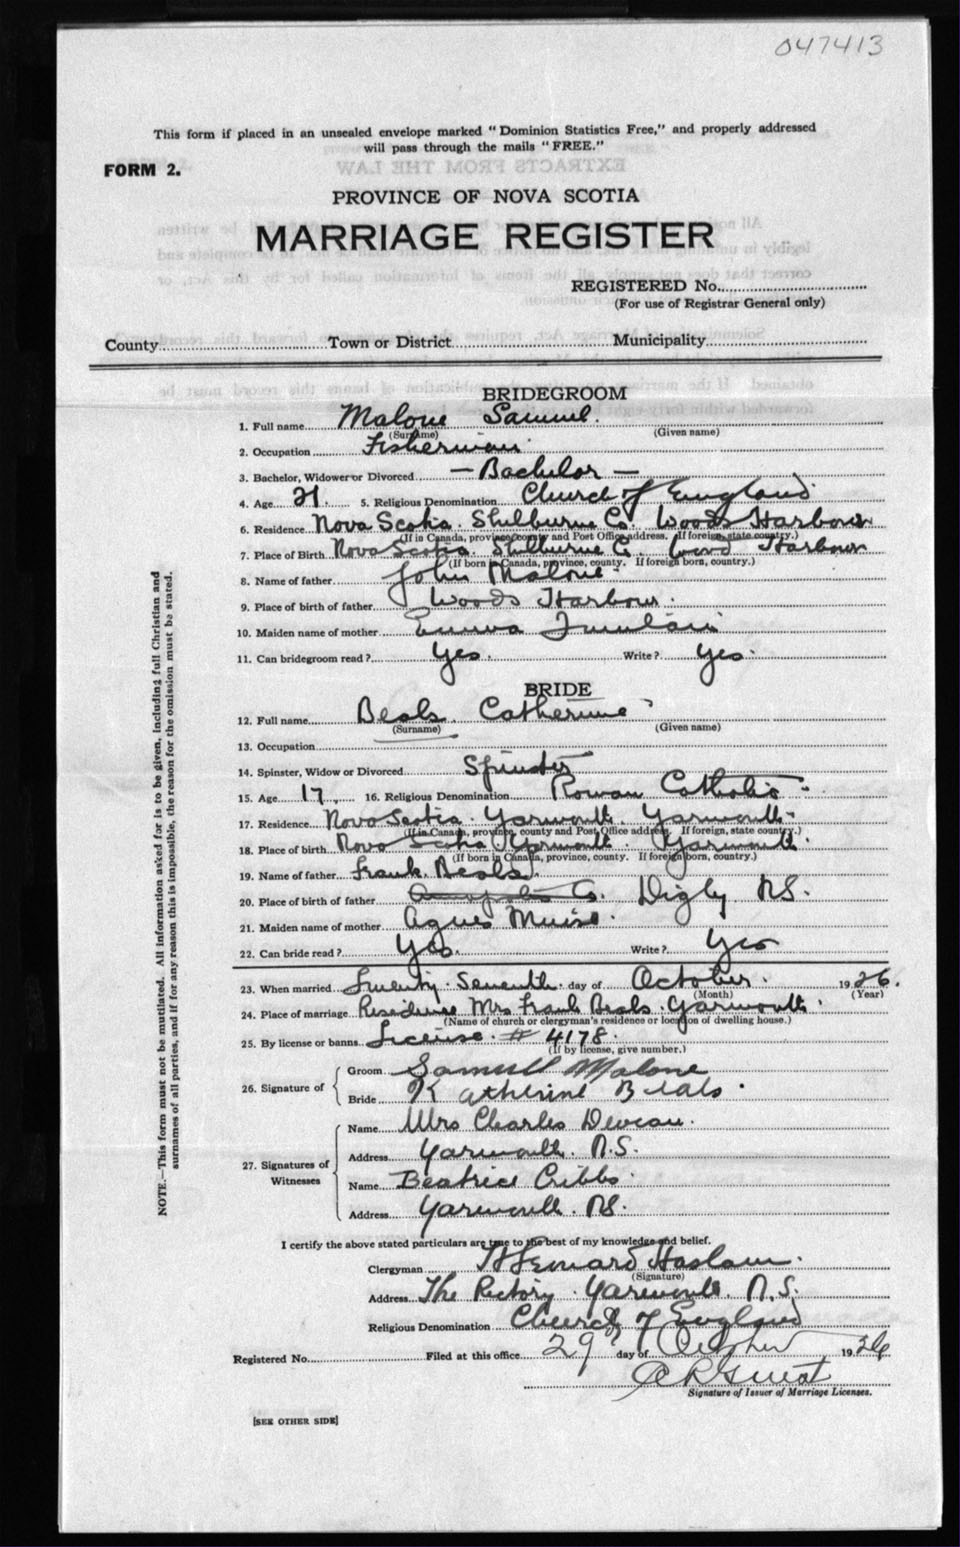 047413
This form if placed in an unsealed envelope marked "Dominion Statistics Free," and properly addressed
will pass through the mails "FREE."
FORM 2.
PROVINCE OF NOVA SCOTIA
MARRIAGE REGISTER
REGISTERED No.
(For use of Registrar General only)
County Town or District Municipality
BRIDEGROOM
1. Full name Malone Samuel.
(Surname) (Given name)
2. Occupation Fisherman
3. Bachelor, Widower or Divorced — Bachelor —
4. Age 21. 5. Religious Denomination Church of England
6. Residence Nova Scotia. Shelburne Co. Woods Harbour
(If in Canada, province, county and Post Office address. If foreign, state country.)
7. Place of Birth Nova Scotia. Shelburne Co. Wood Harbour
(If born in Canada, province, county. If foreign born, country.)
8. Name of father John Malone
9. Place of birth of father Woods Harbour.
10. Maiden name of mother Emma
11. Can bridegroom read? Yes. Write? Yes.
BRIDE
12. Full name Beals. Catherine
(Surname) (Given name)
13. Occupation
14. Spinster, Widow or Divorced Spinster
15. Age 17. 16. Religious Denomination Roman Catholic
17. Residence Nova Scotia. Yarmouth. Yarmouth
(If in Canada, province, county and Post Office address. If foreign, state country.)
18. Place of birth Nova Scotia Yarmouth. Yarmouth.
(If born in Canada, province, county. If foreign born, country.)
19. Name of father Frank Beals.
20. Place of birth of father Annapolis Co. Digby NS.
21. Maiden name of mother Agnes Muise.
22. Can bride read? Yes. Write? Yes
23. When married Twenty Seventh day of October. 1926.
(Month) (Year)
24. Place of marriage Residence Mrs Frank Beals. Yarmouth
(Name of church or clergyman's residence or location of dwelling house.)
25. By license or banns License. # 4178.
(If by license, give number.)
26. Signature of
Groom Samuel Malone
Bride Katherine Beals.
27. Signatures of Witnesses
Name Mrs Charles Deveau.
Address Yarmouth. N.S.
Name Beatrice Cribbs
Address Yarmouth. NS.
I certify the above stated particulars are true to the best of my knowledge and belief.
Clergyman Haslam.
(Signature)
Address The Rectory. Yarmouth. N.S.
Religious Denomination Church of England
Registered No. Filed at this office 29th day of October 1926
Signature of Issuer of Marriage Licenses.
[SEE OTHER SIDE]
NOTE.—This form must not be mutilated. All information asked for is to be given, including full Christian and
surnames of all parties, and if for any reason this is impossible, the reason for the omission must be stated.